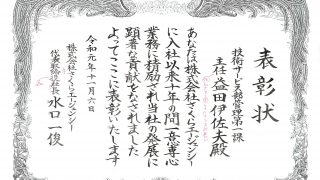 表彰状
技術サービス部管理第一課
主任 益田伊佐夫殿
あなたは株式会社さくらエージェンシー
に入社以来十年の間一意専心
業務に精励され当社の発展に
顕著な貢献をなされました
よってここに表彰いたします
令和元年十一月六日
株式会社さくらエージェンシー
代表取締役社長 水口一俊